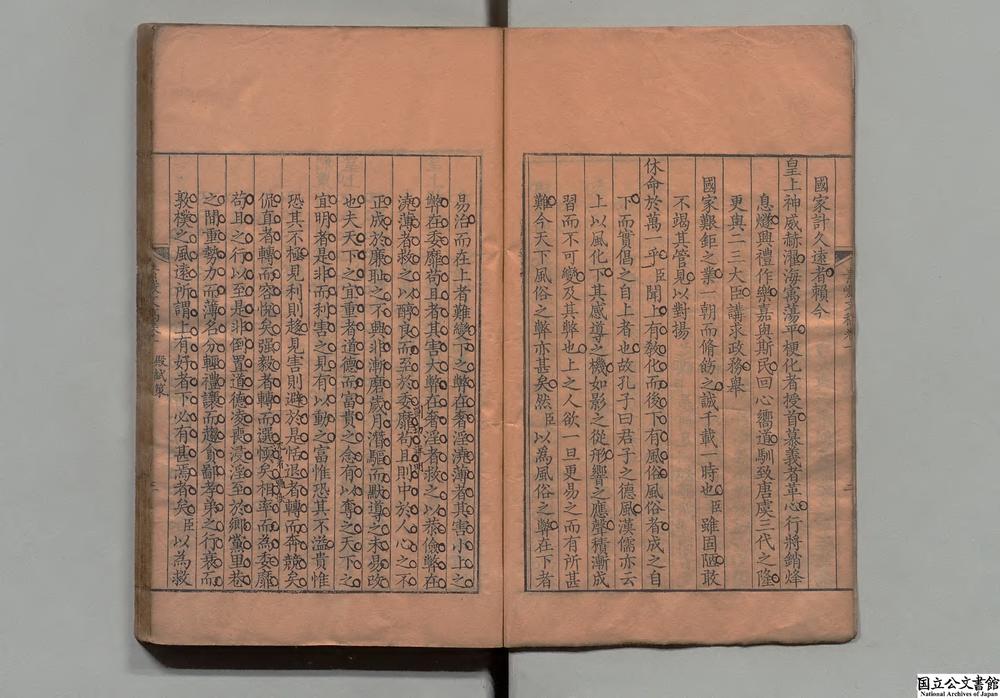 國家計久遠者賴今
皇上神威赫濯海寓蕩平梗化者授首慕義者革心行將銷烽
息燧興禮作樂嘉與斯民回心嚮道馴致唐虞三代之隆
更與一二大臣講求政務舉
國家艱鉅之業一朝而脩飭之誠千載一時也臣雖固陋敢
不竭其管見以對揚
休命於萬一乎臣聞上有敎化而後下有風俗風俗者成之自
下而實倡之自上者也故孔子曰君子之德風漢儒亦云
上以風化下其感導之機如影之從形響之應聲積漸成
習而不可變及其弊也上之人欲一旦更易之而有所甚
難今天下風俗之弊亦甚矣然臣以為風俗之弊在下者
易治而在上者難變下之弊在奢淫澆薄者其害小上之
弊在委靡苟且者其害大弊在奢淫者救之以恭儉弊在
澆薄者救之以醇良而至於委靡苟且則中於人心之不
正成於廉恥之不興非漸磨歲月潛驅而默導之未易改
也夫天下之宜重者道德而富貴之念有以奪之天下之
宜明者是非而利害之見有以動之富惟恐其不溢貴惟
恐其不極見利則趨見害則避於是恬退者轉而奔競矣
侃直者轉而容悅矣强毅者轉而選愞矣相率而為委靡
苟且之行以至是非倒置道德凌喪浸淫至於鄉黨里巷
之間重勢力而薄名分輕禮讓而趨貪鄙孝弟之行衰而
敦樸之風遠所謂上有好者下必有甚焉者矣臣以為救
殿試策
二
三
国立公文書館
National Archives of Japan